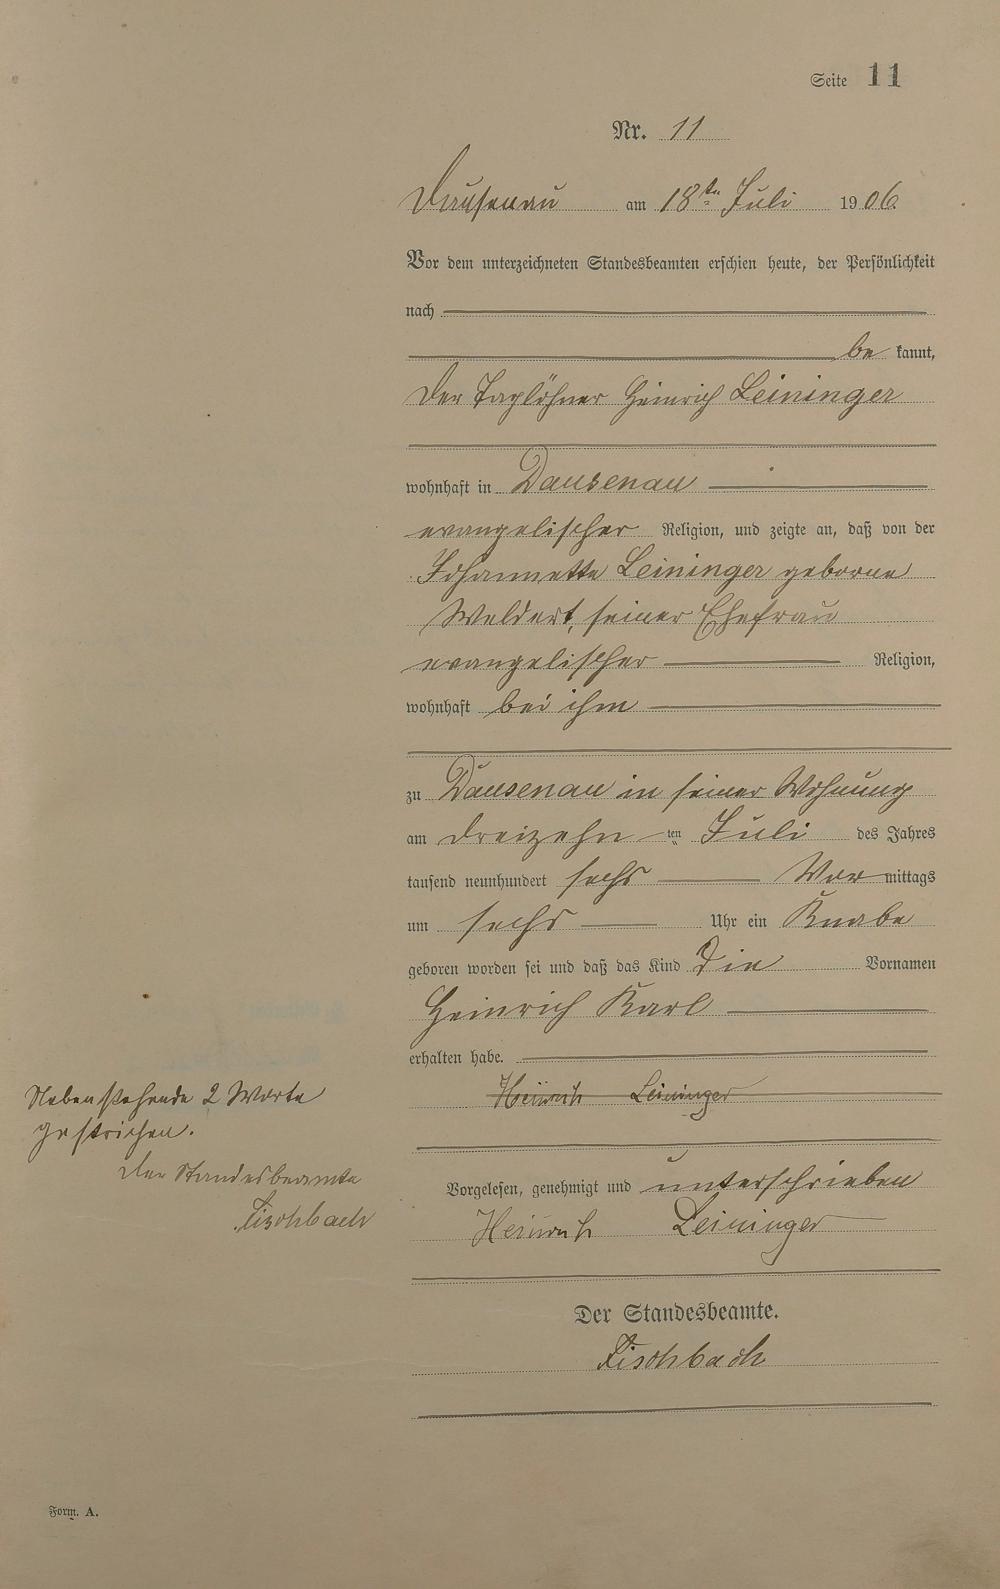 Seite 11
Nr. 11
Dausenau am 18ten Juli 1906
Vor dem unterzeichneten Standesbeamten erschien heute, der Persönlichkeit
nach
be kannt,
der Taglöhner Heinrich Leininger
wohnhaft in Dausenau
evangelischer Religion, und zeigte an, daß von der
Johannette Leininger geborne
Weldert, seiner Ehefrau
evangelischer Religion,
wohnhaft bei ihm
zu Dausenau in seiner Wohnung
am dreizehn ten Juli des Jahres
tausend neunhundert sechs Vor mittags
um sechs Uhr ein Knabe
geboren worden sei und daß das Kind die Vornamen
Heinrich Karl
erhalten habe.
Heinrich Leininger
Nebenstehende 2 Worte
gestrichen.
Der Standesbeamte
Fischbach
Vorgelesen, genehmigt und unterschrieben
Heinrich Leininger
Der Standesbeamte.
Fischbach
Form. A.